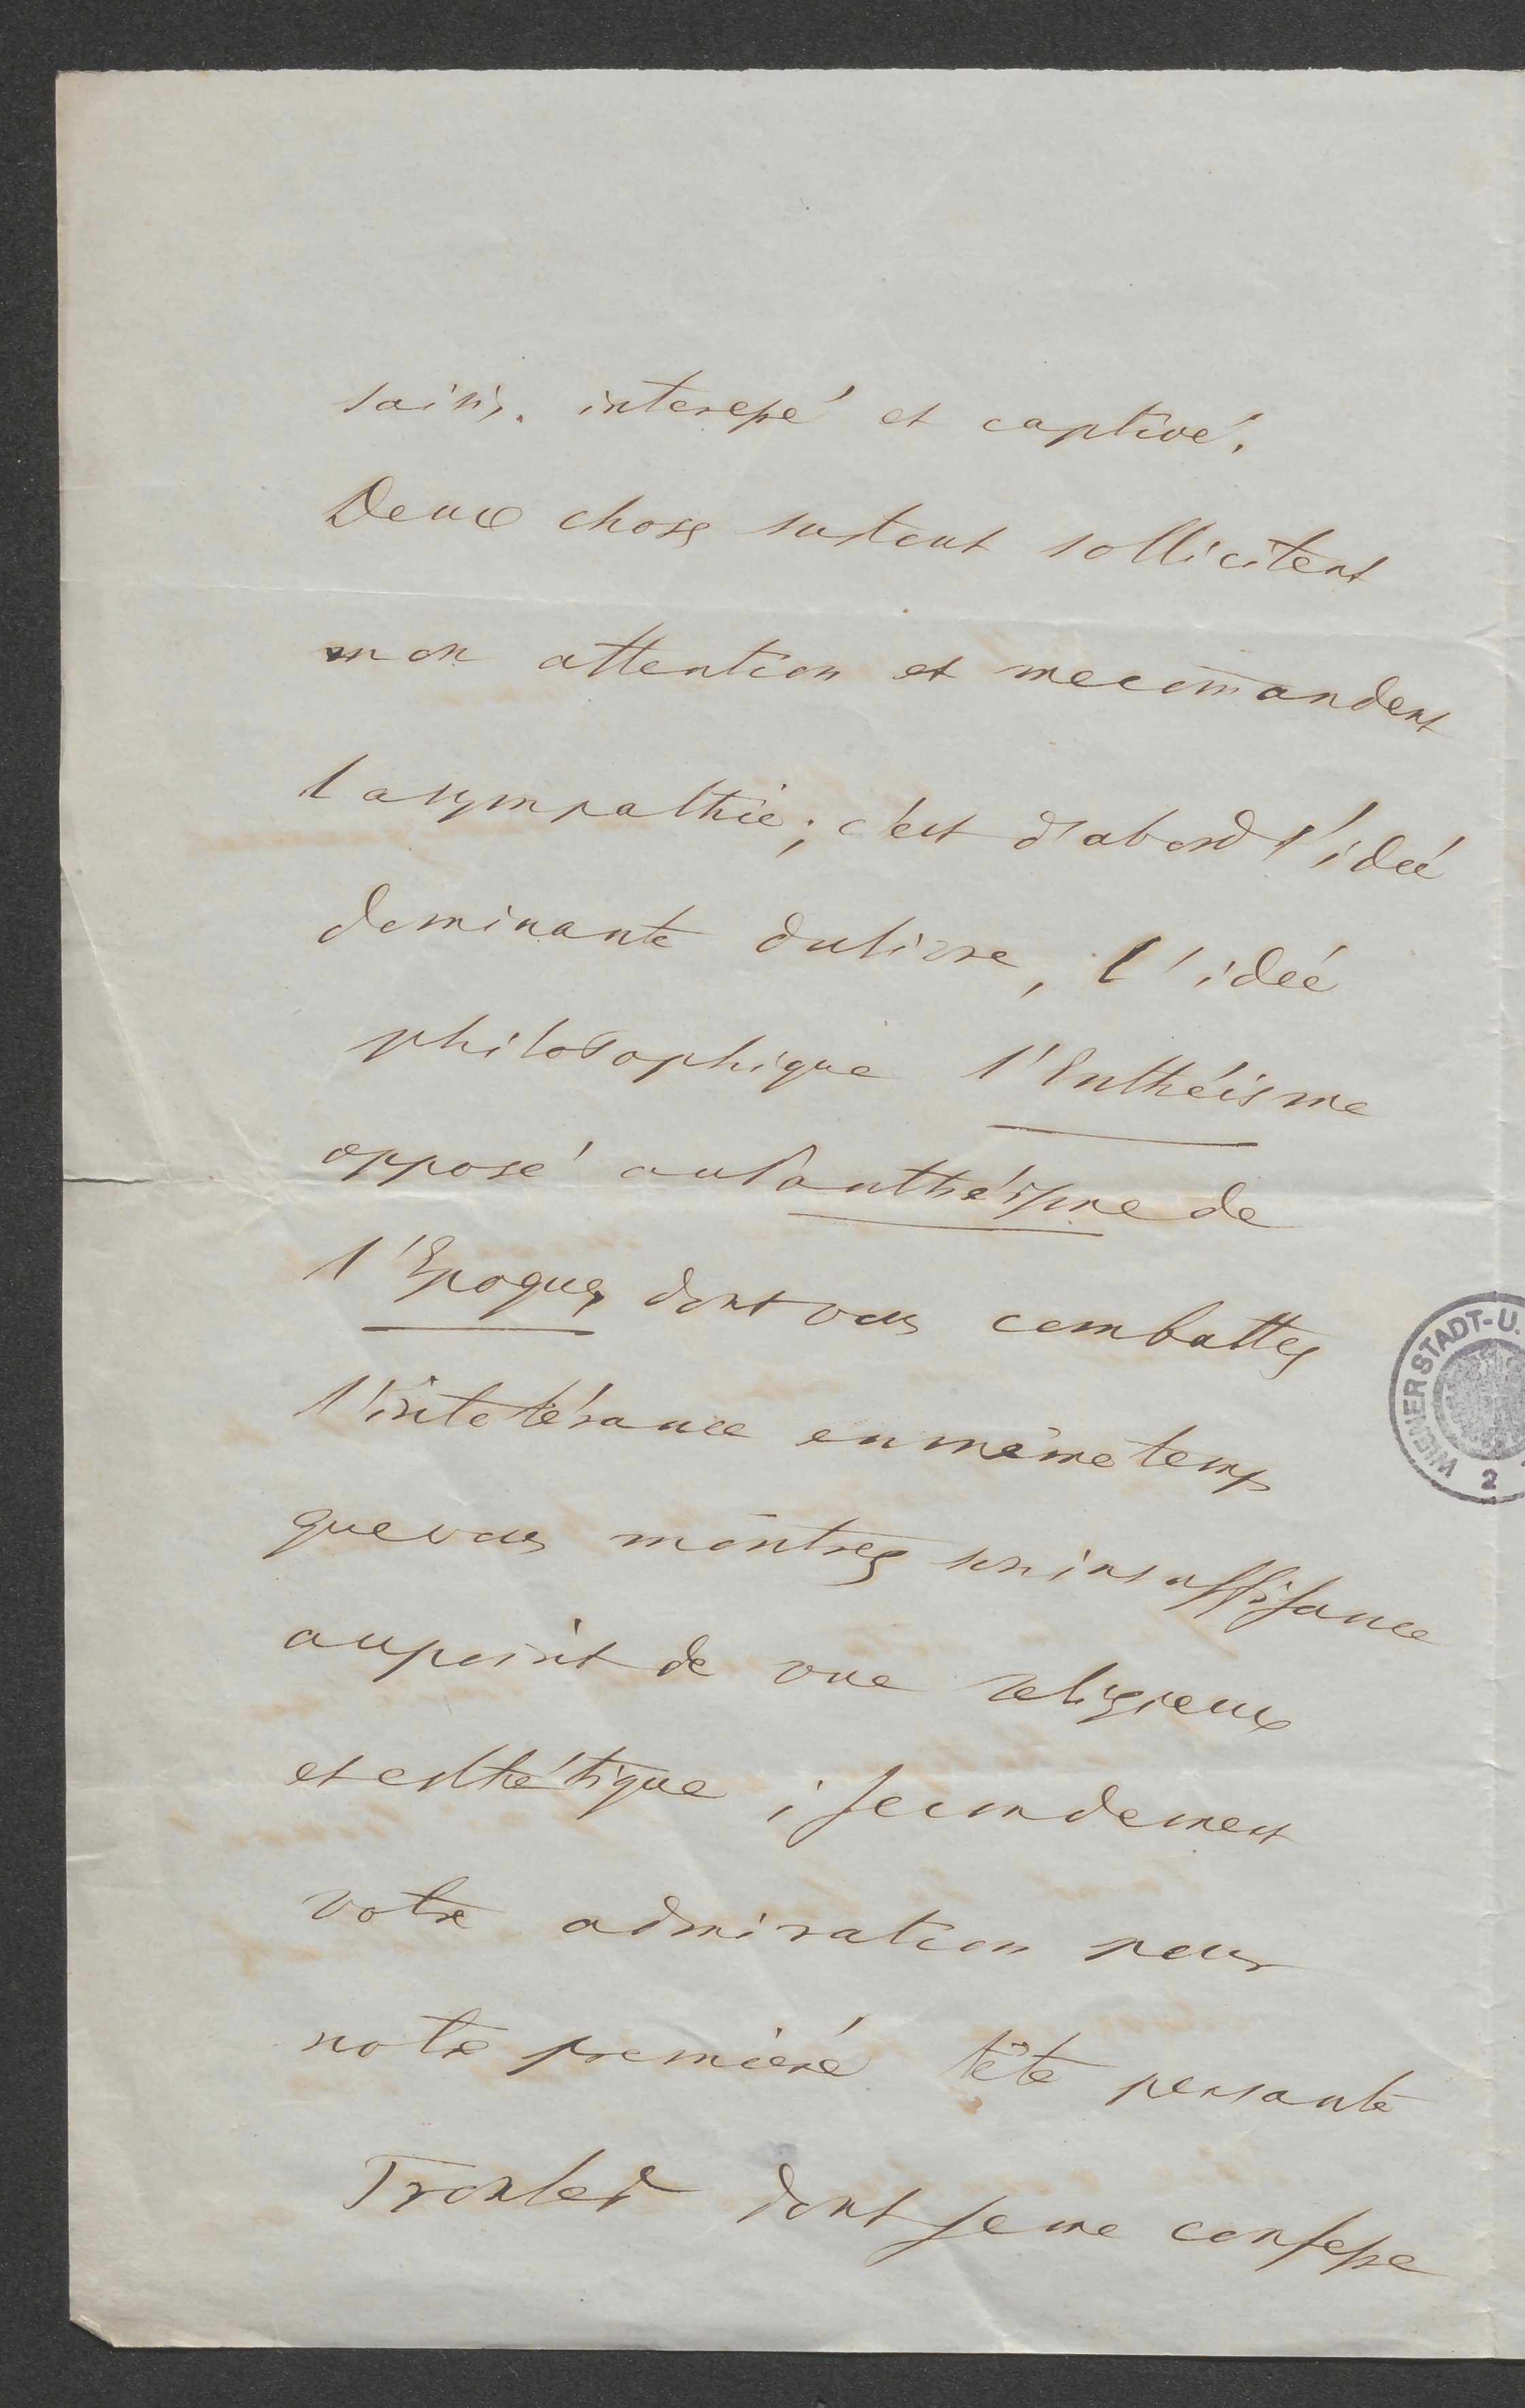 saisi, interessé et captivé.
Deux choses surtout sollicitent
mon attention et me com̄andent
la sympathie; c'est d'abord l'idée
dominante du livre, l'idée
philosophique l'Enthéisme
opposé au Panthéisme de
l'Epoque, dont vous combattez
l'intolérance en même temps
que vous montrez son insuffisance
au point de vue religieux
et esthétique; secondement
votre admiration pour
notre première tête pensante
Troxler dont je me confesse
WIENER STADT-U.
2